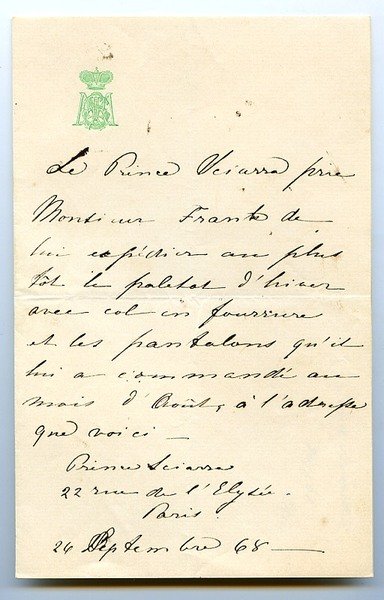 Le Prince Sciarra prie
Monsieur Frank de
lui expédier au plus
tôt le paletot d'hiver
avec col en fourrure
et les pantalons qu'il
lui a commandé au
mois d'Août, à l'adresse
que voici —
Prince Sciarra
22 rue de l'Elysée.
Paris.
26 Septembre 68 —